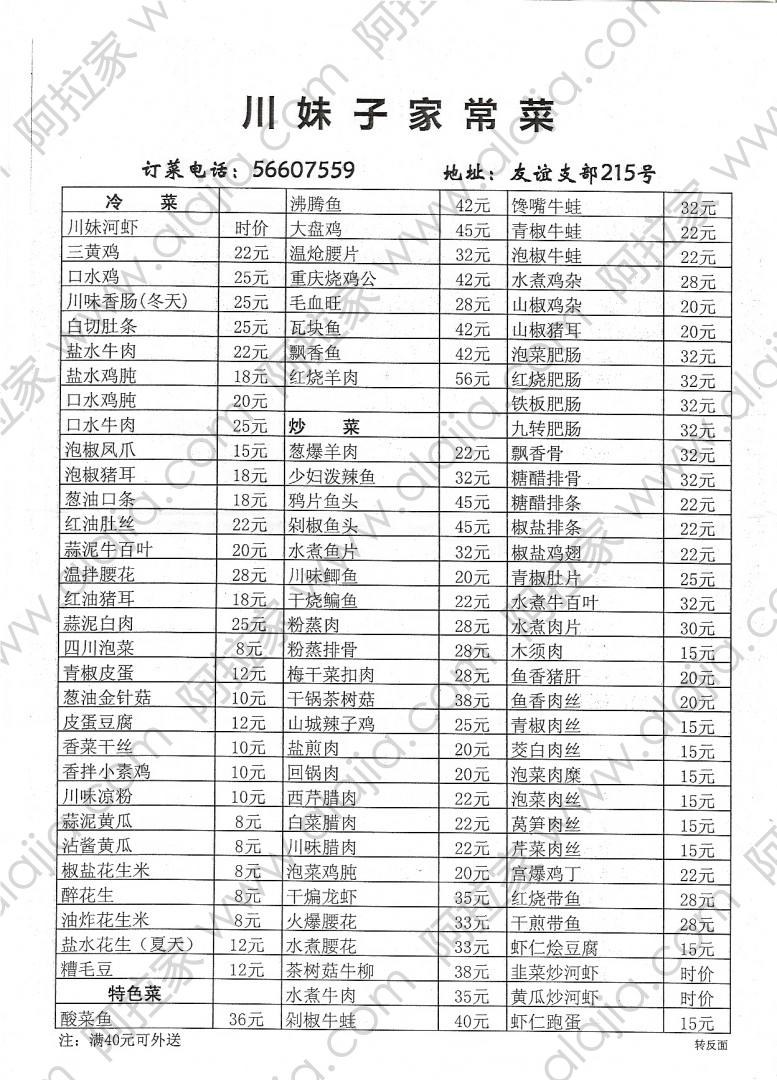 川妹子家常菜
订菜电话：56607559 地址：友谊支部215号
冷 菜 沸腾鱼 42元 馋嘴牛蛙 32元
川妹河虾 时价 大盘鸡 45元 青椒牛蛙 22元
三黄鸡 22元 温炝腰片 32元 泡椒牛蛙 22元
口水鸡 25元 重庆烧鸡公 42元 水煮鸡杂 28元
川味香肠(冬天) 25元 毛血旺 28元 山椒鸡杂 20元
白切肚条 25元 瓦块鱼 42元 山椒猪耳 20元
盐水牛肉 22元 飘香鱼 42元 泡菜肥肠 32元
盐水鸡肫 18元 红烧羊肉 56元 红烧肥肠 32元
口水鸡肫 20元 铁板肥肠 32元
口水牛肉 25元 炒 菜 九转肥肠 32元
泡椒凤爪 15元 葱爆羊肉 22元 飘香骨 32元
泡椒猪耳 18元 少妇泼辣鱼 32元 糖醋排骨 32元
葱油口条 18元 鸦片鱼头 45元 糖醋排条 22元
红油肚丝 22元 剁椒鱼头 45元 椒盐排条 22元
蒜泥牛百叶 20元 水煮鱼片 32元 椒盐鸡翅 22元
温拌腰花 28元 川味鲫鱼 20元 青椒肚片 25元
红油猪耳 18元 干烧鳊鱼 22元 水煮牛百叶 32元
蒜泥白肉 25元 粉蒸肉 28元 水煮肉片 30元
四川泡菜 8元 粉蒸排骨 28元 木须肉 15元
青椒皮蛋 12元 梅干菜扣肉 28元 鱼香猪肝 20元
葱油金针菇 10元 干锅茶树菇 38元 鱼香肉丝 20元
皮蛋豆腐 12元 山城辣子鸡 25元 青椒肉丝 15元
香菜干丝 10元 盐煎肉 20元 茭白肉丝 15元
香拌小素鸡 10元 回锅肉 20元 泡菜肉糜 15元
川味凉粉 10元 西芹腊肉 22元 泡菜肉丝 15元
蒜泥黄瓜 8元 白菜腊肉 22元 莴笋肉丝 15元
沾酱黄瓜 8元 川味腊肉 22元 芹菜肉丝 15元
椒盐花生米 8元 泡菜鸡肫 20元 宫爆鸡丁 22元
醉花生 8元 干煸龙虾 35元 红烧带鱼 28元
油炸花生米 8元 火爆腰花 33元 干煎带鱼 28元
盐水花生（夏天） 12元 水煮腰花 33元 虾仁烩豆腐 15元
糟毛豆 12元 茶树菇牛柳 38元 韭菜炒河虾 时价
特色菜 水煮牛肉 35元 黄瓜炒河虾 时价
酸菜鱼 36元 剁椒牛蛙 40元 虾仁跑蛋 15元
注：满40元可外送 转反面
阿拉家 www.alajia.com